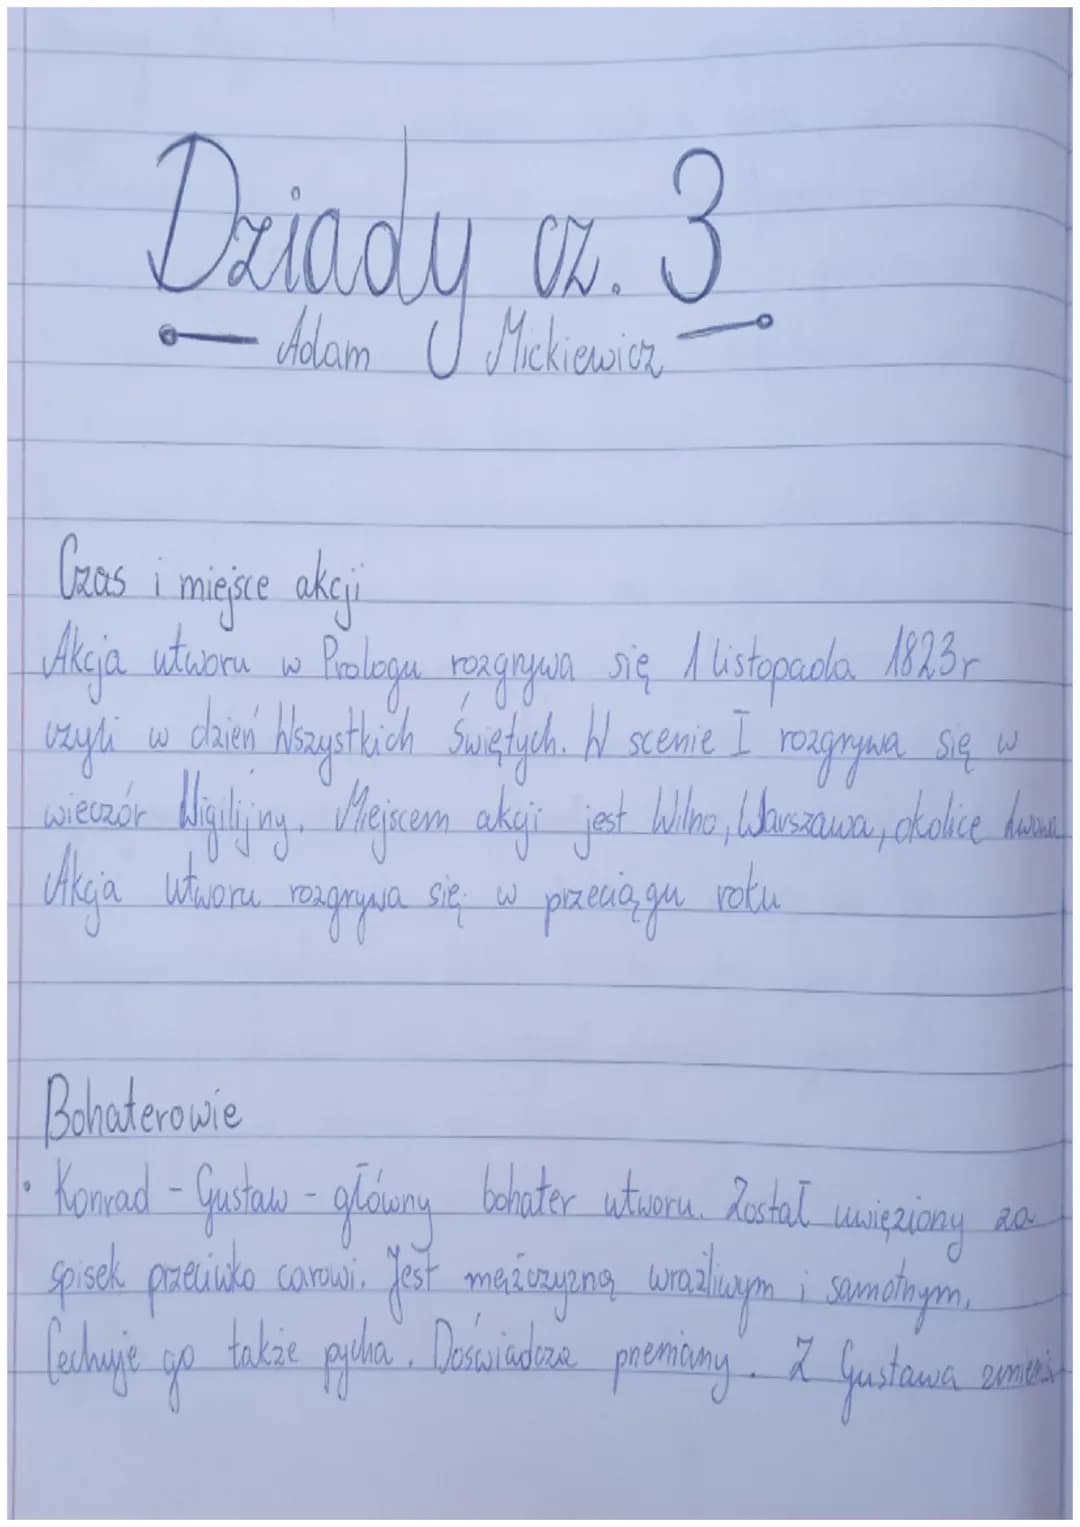 Dziady cz. 3
Adam Mickiewicz
Czas i miejsce akcji
Akcja utworu w Prologu rozgrywa się 1 listopada 1823r
czyli w dzień Wszystkich Świętych. W scenie I rozgrywa się w
wieczór Wigilijny. Miejscem akcji jest Wilno, Warszawa, okolice
Akcja utworu rozgrywa się w przeciągu roku
Bohaterowie
• Konrad - Gustaw - główny bohater utworu. Został uwięziony za
spisek przeciwko carowi. Jest mężczyzną wrażliwym i samotnym.
Cechuje go także pycha. Doświadcza przemiany. Z Gustawa zmienia